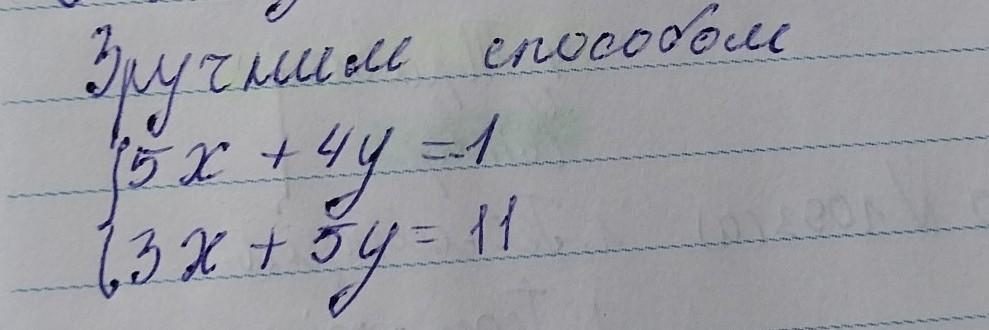 Зручним способом
5x + 4y = -1
3x + 5y = 11